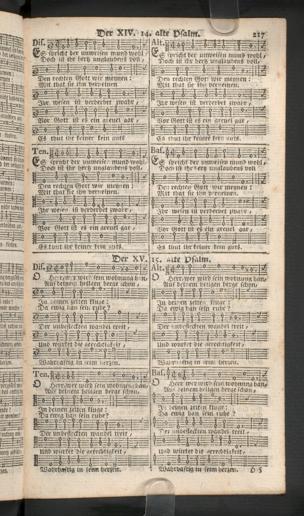 Der XIV. 14. alte Psalm. 217
Dis.
ES spricht der unweisen mund wohl,
Doch ist ihr hertz unglaubens voll,
Den rechten Gott wir meynen:
Mit that sie ihn verneinen.
Ihr wesen ist verderbet zwahr,
Vor Gott ist es ein greuel gar,
Es thut ihr keiner kein guts.
Alt.
ES spricht der unweisen mund wohl,
Doch ist ihr hertz unglaubens voll,
Den rechten Gott wir meynen:
Mit that sie ihn verneinen.
Ihr wesen ist verderbet zwahr,
Vor Gott ist es ein greuel gar,
Es thut ihr keiner kein guts.
Ten.
ES spricht der unweisen mund wohl,
Doch ist ihr hertz unglaubens voll,
Den rechten Gott wir meynen:
Mit that sie ihn verneinen.
Ihr wesen ist verderbet zwahr,
Vor Gott ist es ein greuel gar,
Es thut ihr keiner kein guts.
Bas.
ES spricht der unweisen mund wohl,
Doch ist ihr hertz unglaubens voll,
Den rechten Gott wir meynen:
Mit that sie ihn verneinen.
Ihr wesen ist verderbet zwahr,
Vor Gott ist es ein greuel gar,
Es thut ihr keiner kein guts.
Der XV. 15. alte Psalm.
Dis.
O Herr, wer wird sein wohnung han,
Auf deinem heiligen berge schon,
In deinen zelten klug?
Da ewig han sein ruhe?
Der unbefleckten wandel treit,
Und würcket die gerechtigkeit,
Wahrhafftig in seim hertzen.
Alt.
O Herr, wer wird sein wohnung han,
Auf deinem heiligen berge schon,
In deinen zelten klug?
Da ewig han sein ruhe?
Der unbefleckten wandel treit,
Und würcket die gerechtigkeit,
Wahrhafftig in seim hertzen.
Ten.
O Herr, wer wird sein wohnung han,
Auf deinem heiligen berge schon,
In deinen zelten klug?
Da ewig han sein ruhe?
Der unbefleckten wandel treit,
Und würcket die gerechtigkeit,
Wahrhafftig in seim hertzen.
Bas.
O Herr, wer wird sein wohnung han,
Auf deinem heiligen berge schon,
In deinen zelten klug?
Da ewig han sein ruhe?
Der unbefleckten wandel treit,
Und würcket die gerechtigkeit,
Wahrhafftig in seim hertzen.